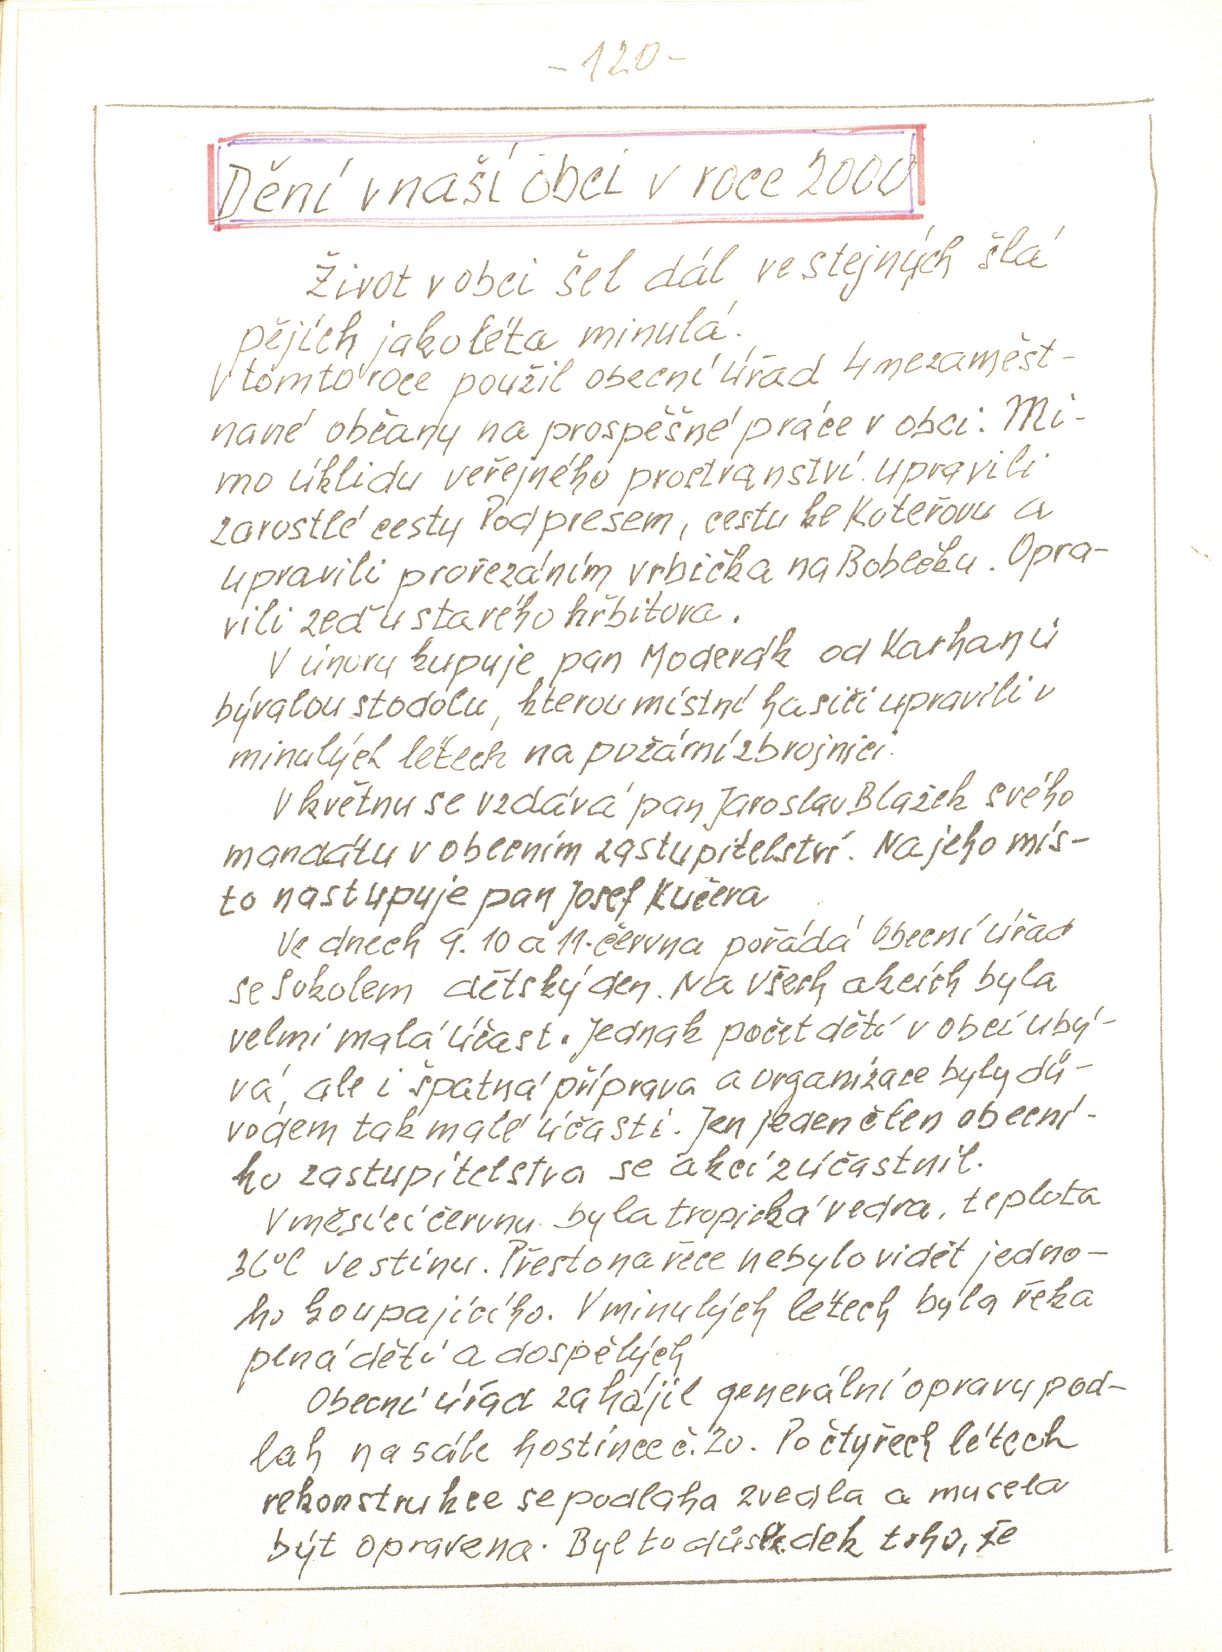 -120-
Dění v naší obci v roce 2000
Život v obci šel dál ve stejných šlá
pějích jako léta minulá.
V tomto roce použil obecní úřad 4 nezaměst-
nané občany na prospěšné práce v obci. Mi-
mo úklidu veřejného prostranství upravili
zarostlé cesty Pod presem, cestu ke Koteřovu a
upravili prořezáním vrbička na Bobečku. Opra-
vili zeď u starého hřbitova.
V únoru kupuje pan Moderák od Karhanů
bývalou stodolu, kterou místní hasiči upravili v
minulých létech na požární zbrojnici.
V květnu se vzdává pan Jaroslav Blažek svého
mandátu v obecním zastupitelství. Na jeho mís-
to nastupuje pan Josef Kučera
Ve dnech 9. 10 a 11. června pořádá Obecní úřad
se Sokolem dětský den. Na všech akcích byla
velmi malá účast. Jednak počet dětí v obci ubý-
vá, ale i špatná příprava a organizace byly dů-
vodem tak malé účasti. Jen jeden člen obecní-
ho zastupitelstva se akcí zúčastnil.
V měsíci červnu byla tropická vedra, teplota
36°C ve stínu. Přesto na řece nebylo vidět jedno-
ho koupajícího. V minulých létech byla řeka
plná dětí a dospělých
Obecní úřad zahájil generální opravu pod-
lah na sále hostince č. 20. Po čtyřech létech
rekonstrukce se podlaha zvedla a musela
být opravena. Byl to důsledek toho, že